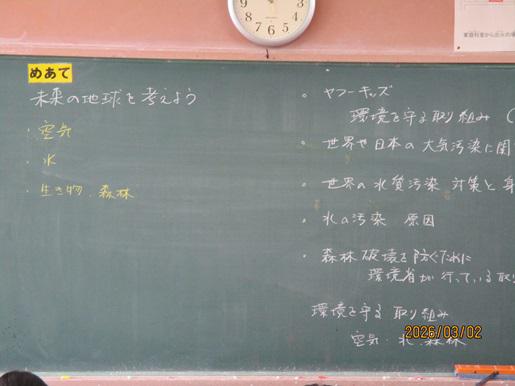 めあて
未来の地球を考えよう
・空気
・水
・生き物、森林
・ヤフーキッズ
環境を守る取り組み(
・世界や日本の大気汚染に関
・世界の水質汚染 対策と身
・水の汚染 原因
・森林破壊を防ぐために
環境省が行っている取り
環境を守る取り組み
空気・水・森林
2026/03/02